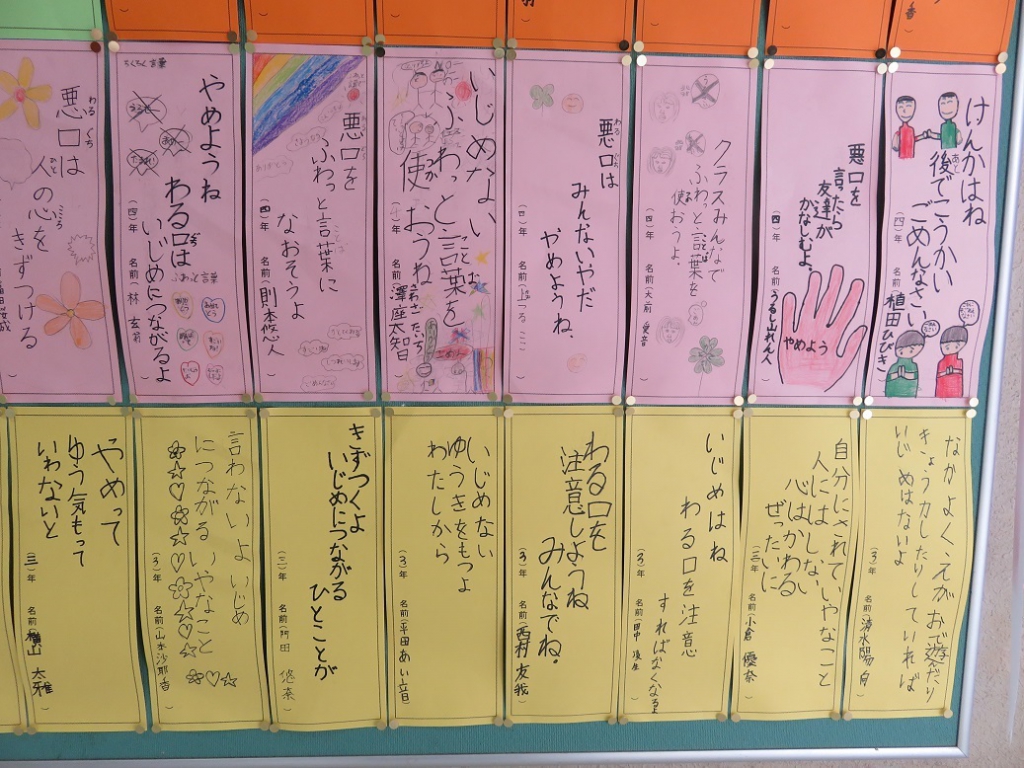 けんかはね
後で こうかい
ごめんなさい
(四)年 名前(植田ひびき
悪口を
言ったら
友達が
かなしむよ。
(四)年
名前(うるし山れん人
やめよう
クラスみんなで
ふわっと言葉を
使おうよ。
(四)年
悪口は
みんないやだ
やめようね。
いじめない
ふわっと言葉を
使おうね
悪口を
ふわっと言葉に
なおそうよ
(四)年
名前(則本悠人
ちくちく言葉
やめようね
わる口は
いじめにつながるよ
(四)年
名前(林
ふわっと言葉
悪口は
人の心を
きずつける
なかよくえがおで遊んだり
きょう力したりしていれば
いじめはないよ
(3)年
名前(清水陽向
自分にされていやなこと
人にはしない
心はかわる
ぜったいに
(三)年
名前(小倉 優奈
いじめはね
わる口を注意
すればなくなるよ
(3)年
わる口を
注意しようね
みんなでね。
(3)年
名前(西村 友哉
いじめない
ゆうきをもつよ
わたしから
(3)年
名前(平田あい音
きずつくよ
いじめにつながる
ひとことが
(三)年
名前(阿田 悠奈
言わないよ いじめ
につながる いやなこと
(3)年
名前(山本沙耶香
やめって
ゆう気もって
いわないと
三)年
名前(横山 太雅